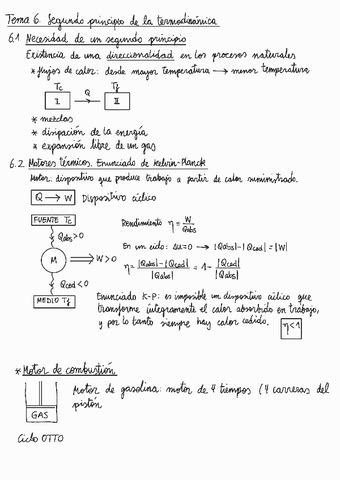 Tema 6. Segundo principio de la termodinámica
6.1 Necesidad de un segundo principio
Existencia de una direccionalidad en los procesos naturales
* flujos de calor: desde mayor temperatura → menor temperatura
Tc Tf
I Q → II
* mezclas
* disipación de la energía
* expansión libre de un gas
6.2. Motores térmicos. Enunciado de Kelvin-Planck
Motor: dispositivo que produce trabajo a partir de calor suministrado.
Q → W Dispositivo cíclico
FUENTE Tc
Rendimiento η = W/Qabs
Qabs > 0
En un ciclo: ΔU=0 → |Qabs|-|Qced| = |W|
M ⇒ W > 0
η = |Qabs|-|Qced| / |Qabs| = 1 - |Qced| / |Qabs|
Qced < 0
MEDIO Tf
Enunciado K-P: es imposible un dispositivo cíclico que
transforme íntegramente el calor absorbido en trabajo,
y por lo tanto siempre hay calor cedido. η<1
* Motor de combustión
Motor de gasolina: motor de 4 tiempos (4 carreras del
pistón
GAS
Ciclo OTTO